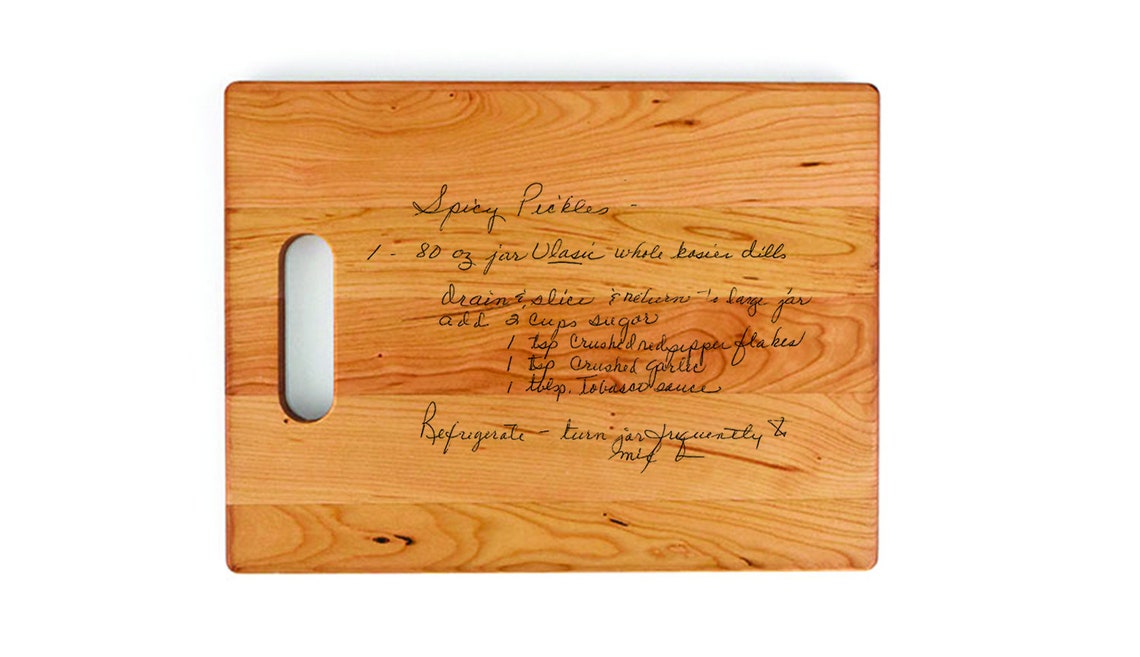 Spicy Pickles -
1 - 80 oz jar Vlasic whole kosier dills
drain & slice & return to large jar
add 2 cups sugar
1 tsp Crushed red pepper flakes
1 tsp Crushed garlic
1 tblsp. Tobasco sauce
Refrigerate - turn jar frequently &
mix